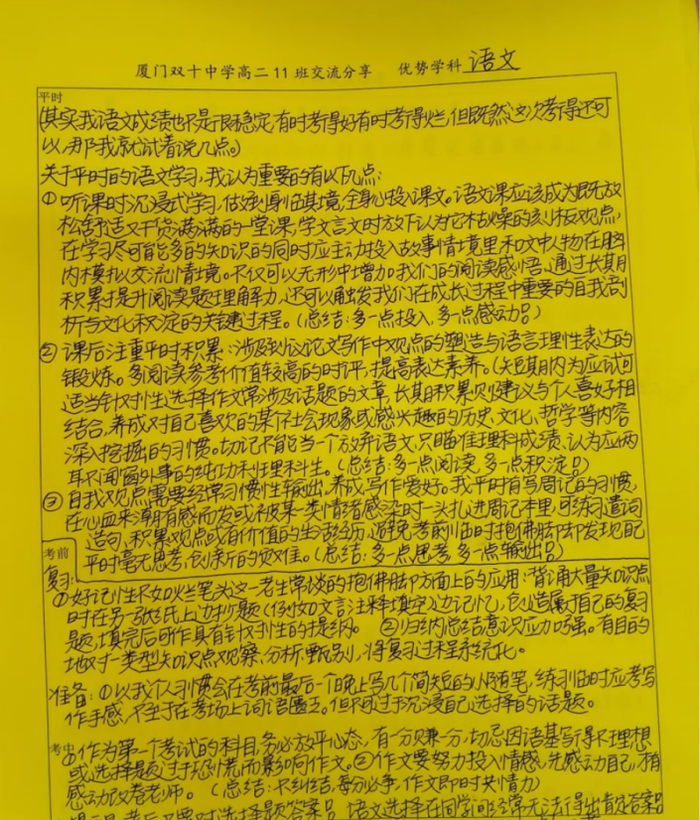 厦门双十中学高二11班交流分享 优势学科 语文
平时
(其实我语文成绩也不是很稳定,有时考得好有时考得烂,但既然这次考得还可
以,那我就试着说几点。)
关于平时的语文学习,我认为重要的有以下几点:
①听课时沉浸式学习,做到身临其境,全身心投入课文。语文课应该成为既放
松舒适又干货满满的一堂课,学文言文时放下认为它枯燥的刻板观点,
在学习尽可能多的知识的同时应主动投入故事情境里和文中人物在脑
内模拟交流情境。不仅可以无形中增加我们的阅读感悟、通过长期
积累提升阅读题理解力,还可以触发我们在成长过程中重要的自我剖
析与文化积淀的关键过程。(总结:多一点投入,多一点感动!)
②课后注重平时积累:涉及到议论文写作中观点的塑造与语言理性表达的
锻炼。多阅读参考价值较高的时评,提高表达素养。(短期内为应试可
适当针对性选择作文常涉及话题的文章,长期积累则建议与个人喜好相
结合,养成对自己喜欢的某个社会现象或感兴趣的历史、文化、哲学等内容
深入挖掘的习惯。切记不能当一个放弃语文,只瞄准理科成绩,认为应两
耳不闻窗外事的纯功利性理科生。(总结:多一点阅读,多一点积淀!)
③自我观点需要经常习惯性输出,养成写作爱好。我平时有写周记的习惯,
在心血来潮有感而发或被某一类情绪感染时一头扎进周记本里,可练习遣词
造句,积累观点或有价值的生活经历,避免考前临时抱佛脚却发现自己
平时毫无思考、创新的效难。(总结:多一点思考,多一点输出!)
考前
复习:
①好记性不如烂笔头这一老生常谈的抱佛脚方面上的应用:背诵大量知识点
时在另一张纸上边抄题(例如文言注释填空)边记忆,创造属于自己的复习
题,填完后可作具有针对性的提纲。 ②归纳总结意识应加强。有目的
地对一类型知识点观察、分析、甄别,将复习过程系统化。
准备:①以我个人习惯会在考前最后一个晚上写几个简短的小随笔,练习临时应考写
作手感,不至于在考场上词语匮乏。但不可过于沉浸自己选择的话题。
考中
①作为第一个考试的科目,务必放平心态,有一分赚一分,切忌因语基写得不理想
或选择题过于恐慌而影响作文。②作文要努力投入情感,先感动自己,才能
感动改卷老师。(总结:不纠结,每分必争,作文即时共情力)
考后不要对选择题答案!语文选择在同学间经常无法得出肯定答案!